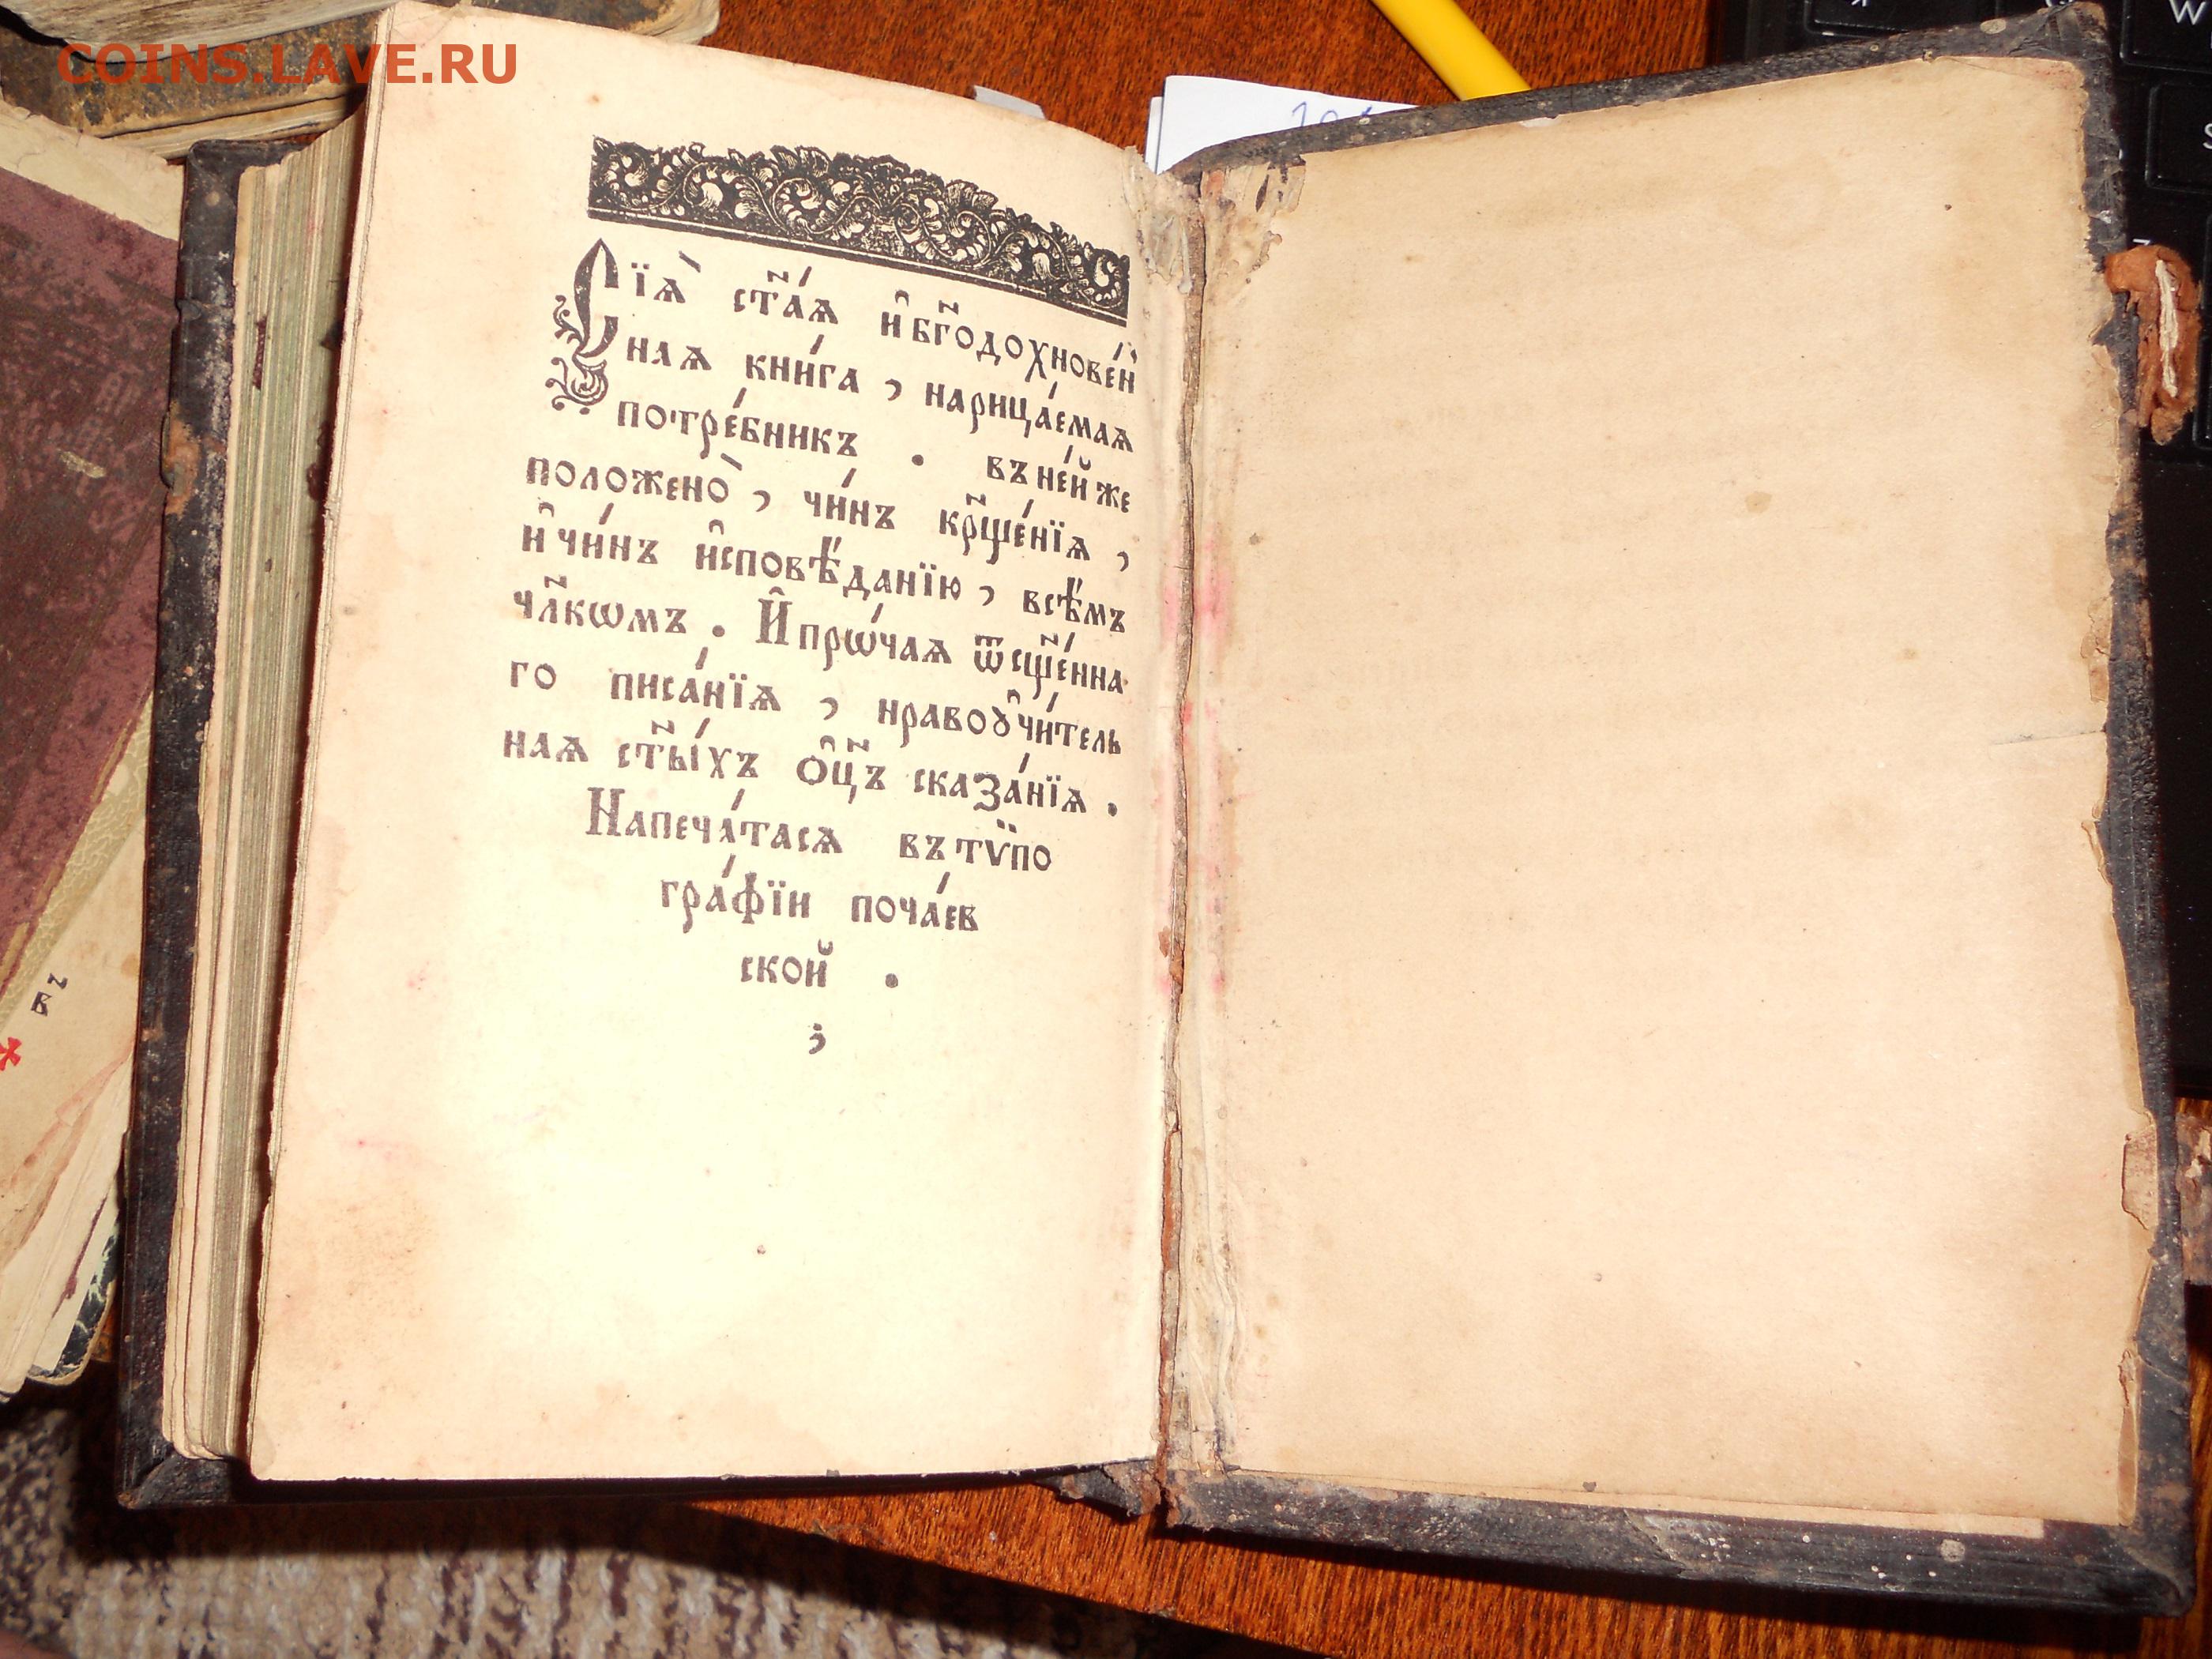 COINS.LAVE.RU
Сїѧ̀ ст҃аѧ и҆ бг҃одохнове́н
наѧ кни́га, нарица́емаѧ
потре́бникъ. въ не́й же
положено̀, чи́нъ кр҃ще́нїѧ,
и҆ чи́нъ и҆сповѣ́данїю, всѣ́мъ
чл҃кѡмъ. И҆ прѡ́чаѧ ѿ сщ҃е́нна
го писа́нїѧ, нравоꙋ҆чи́тель
наѧ ст҃ы́хъ ѻ҆ц҃ъ сказа́нїѧ.
Напеча́тасѧ въ тѷпо
гра́фїи поча́ев
ской.
;